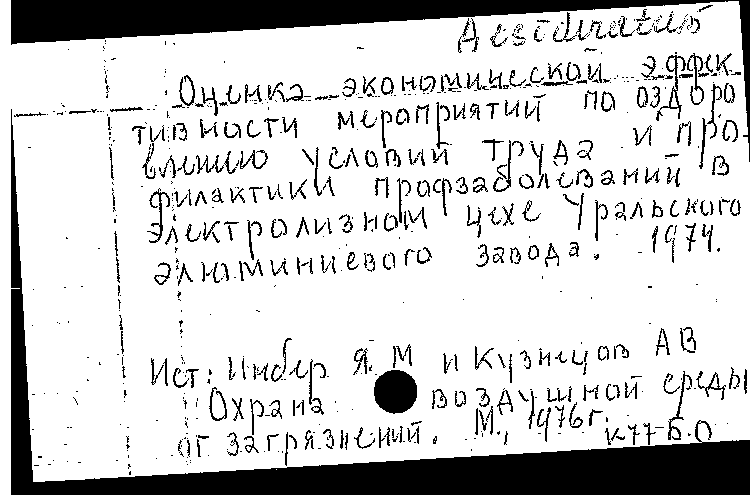 Desideratus
Оценка экономической эффек
тивности мероприятий по оздоро
влению условий труда и про-
филактики профзаболеваний в
электролизном цехе Уральского
алюминиевого завода. 1974.
Ист: Инбер Я. М и Кузнецов АВ
Охрана воздушной среды
от загрязнений. М., 1976г.
К-77-Б.О